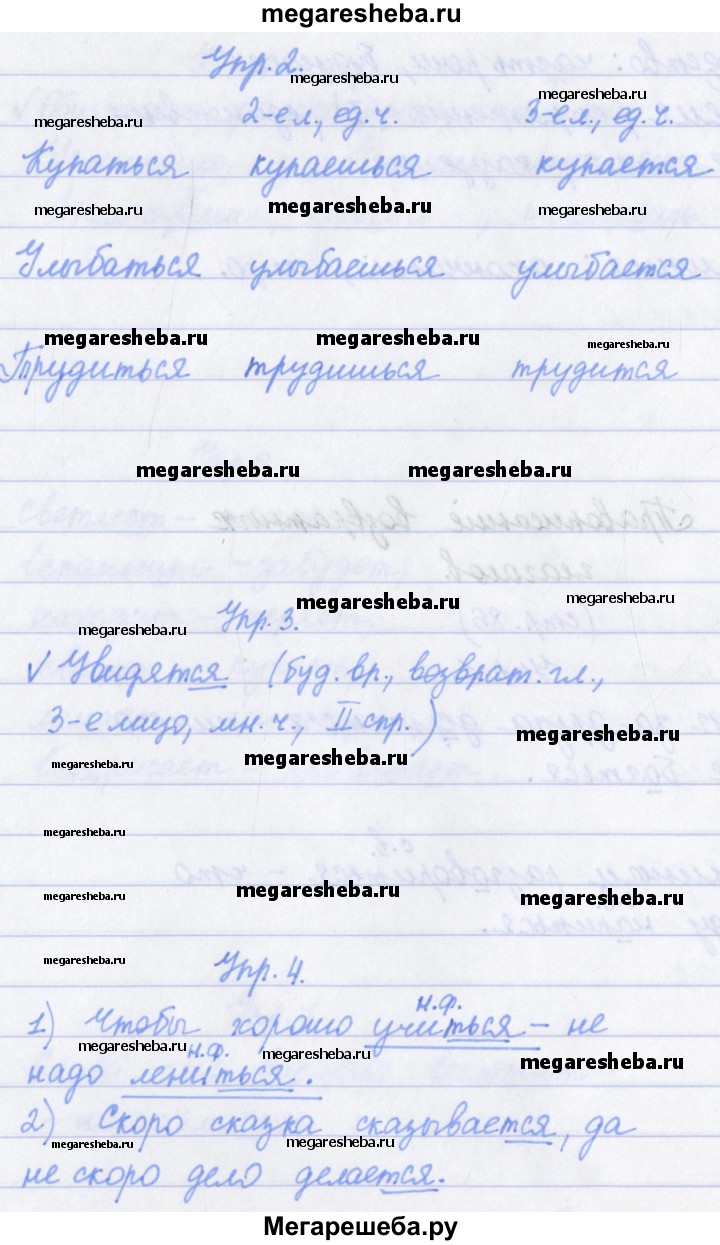 megaresheba.ru
Упр. 2.
megaresheba.ru
megaresheba.ru
megaresheba.ru
2-е л., ед. ч. 3-е л., ед. ч.
Купаться купаешься купается
megaresheba.ru megaresheba.ru megaresheba.ru
Улыбаться улыбаешься улыбается
megaresheba.ru megaresheba.ru megaresheba.ru
Трудиться трудишься трудится
megaresheba.ru megaresheba.ru
Правописание возвратных
глаголов.
megaresheba.ru megaresheba.ru
(стр. 86)
Упр. 3.
megaresheba.ru
√ Увидятся (буд. вр., возврат. гл.,
3-е лицо, мн. ч., II спр.)
megaresheba.ru
megaresheba.ru
megaresheba.ru
megaresheba.ru
megaresheba.ru
megaresheba.ru
megaresheba.ru
Упр. 4.
megaresheba.ru
н.ф.
1) Чтобы хорошо учиться – не
megaresheba.ru н.ф. megaresheba.ru megaresheba.ru
надо лениться.
2) Скоро сказка сказывается, да
megaresheba.ru megaresheba.ru
не скоро дело делается.
Мегарешеба.ру